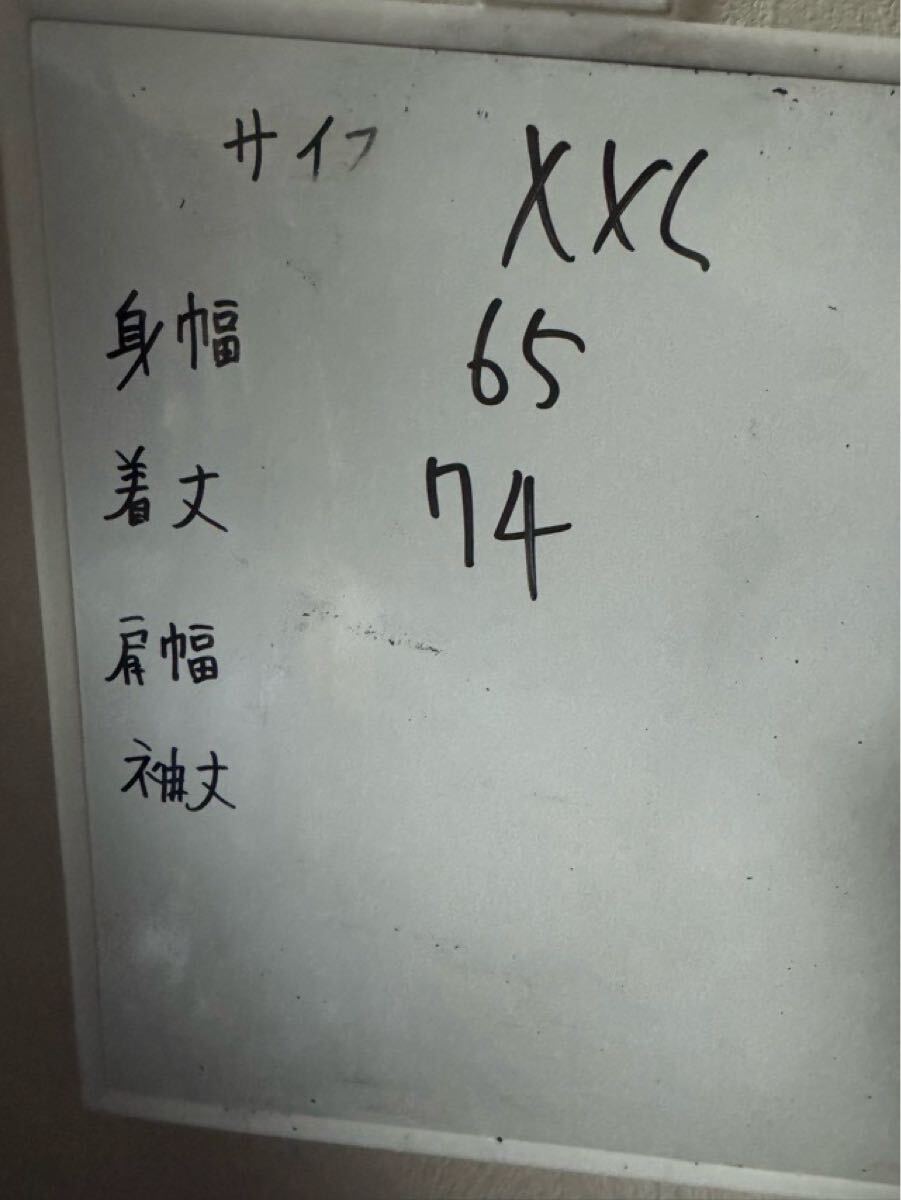 サイズ XXL
身幅 65
着丈 74
肩幅
袖丈